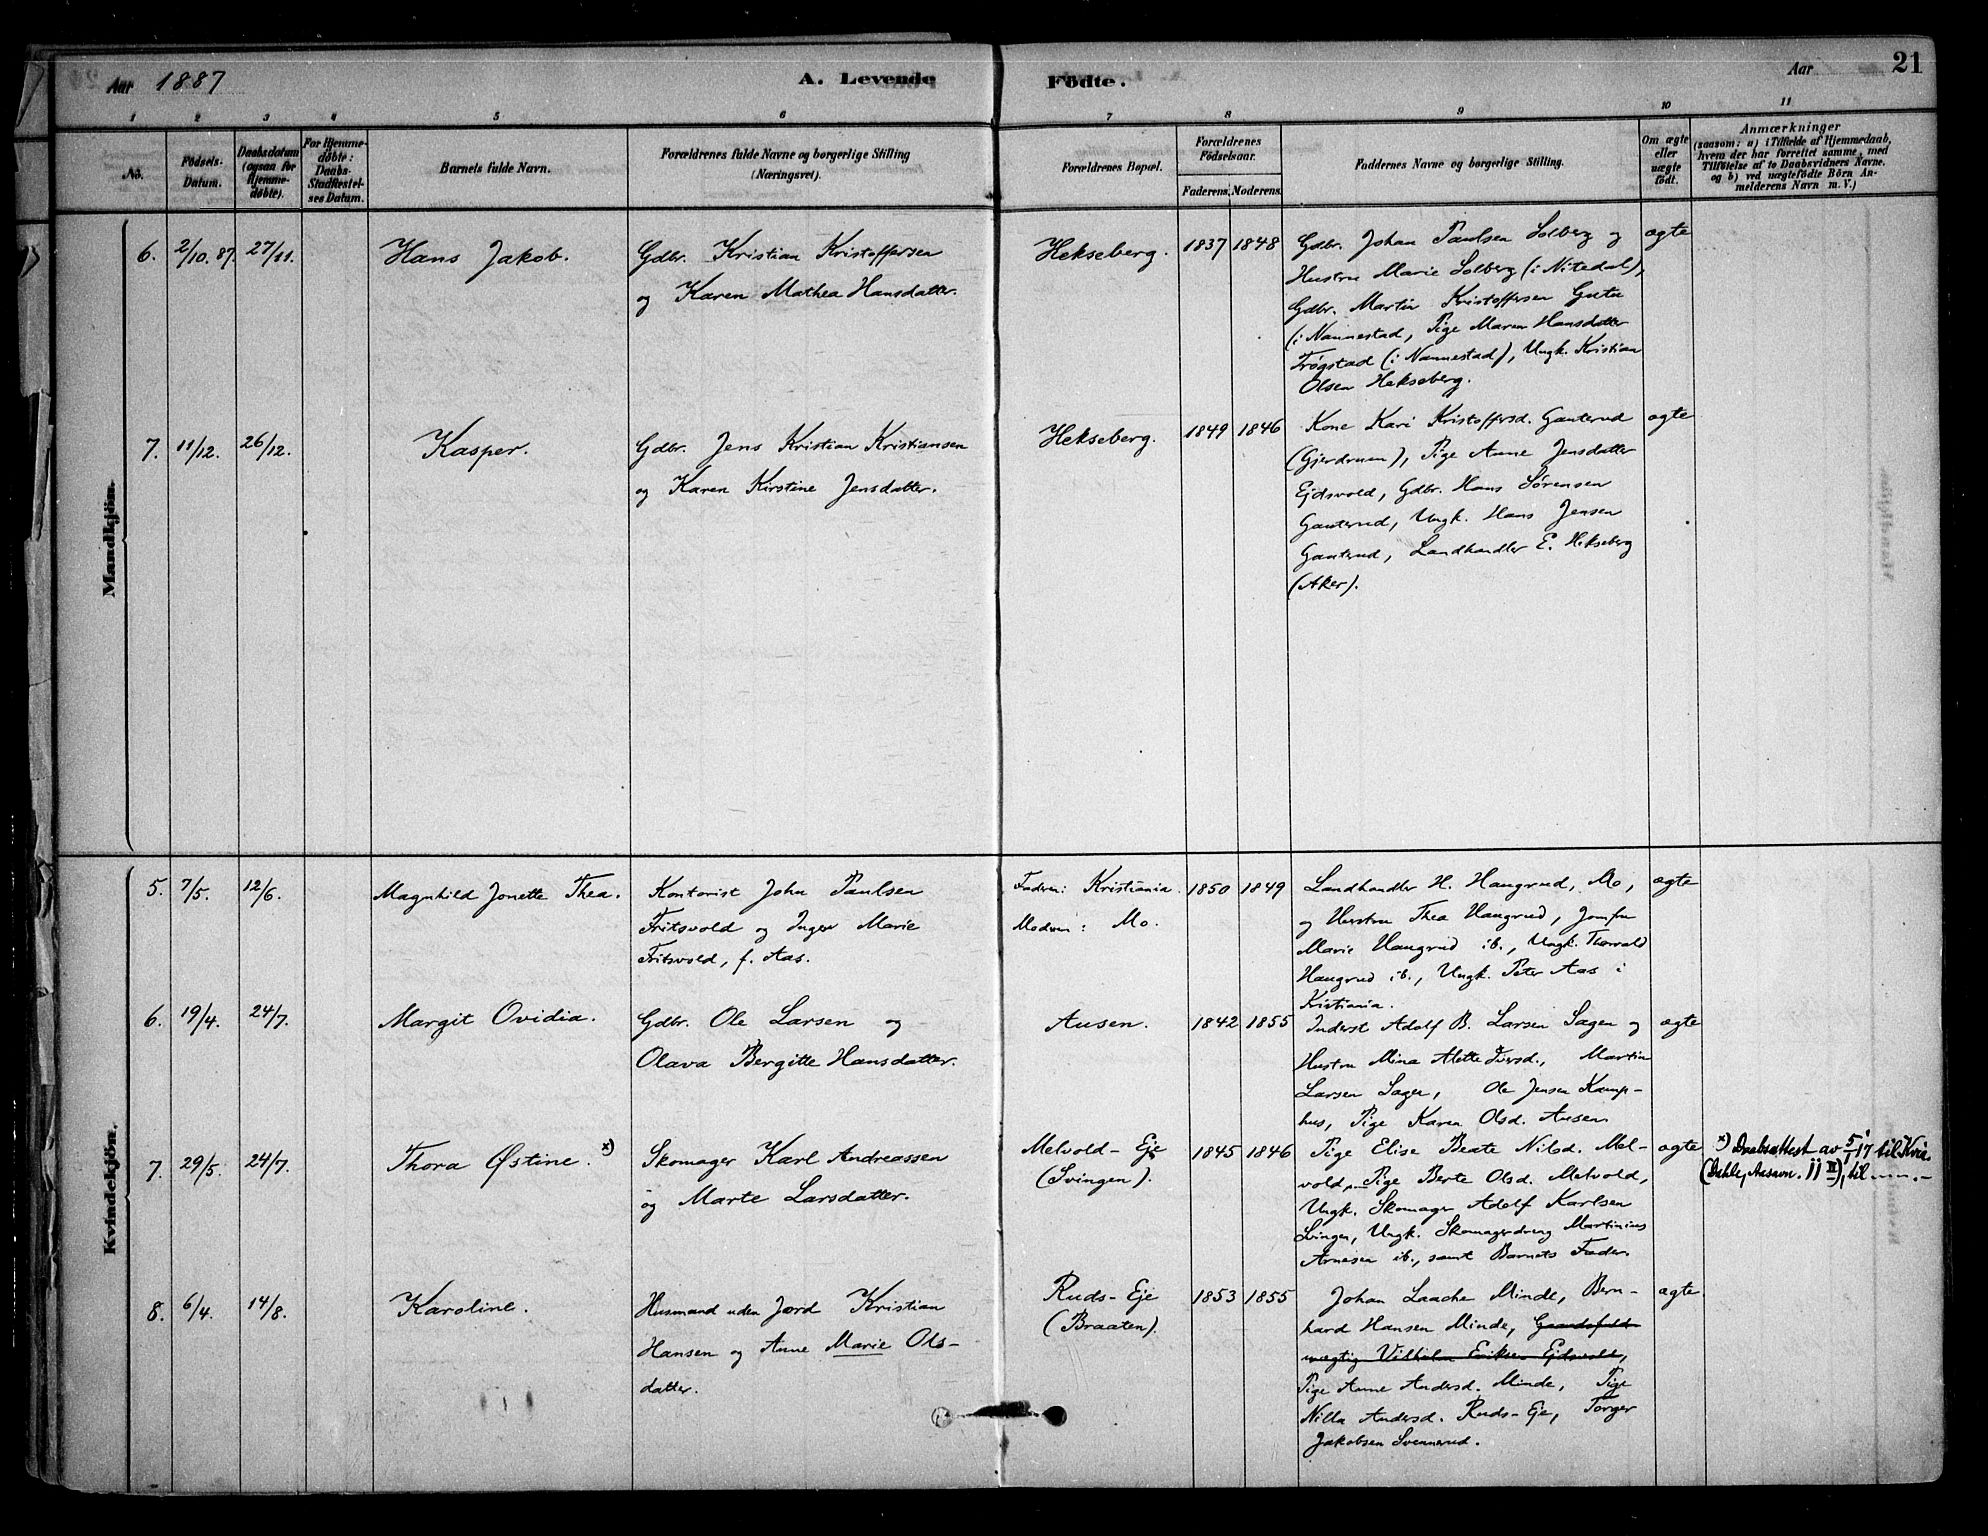 Aar 1887
A. Levende Födte.
Aar
21
1 2 3 4 5 6 7 8 9 10 11
No.
Födsels-Datum.
Daabsdatum (ogsaa for Hjemmedøbte).
For Hjemmedøbte: Daabs-Stadfæstelses Datum.
Barnets fulde Navn.
Forældrenes fulde Navne og borgerlige Stilling (Næringsvei).
Forældrenes Bopæl.
Forældrenes Födselsaar.
Faderens. Moderens.
Faddernes Navne og borgerlige Stilling.
Om ægte eller uægte født.
Anmærkninger
(saasom: a) i Tilfælde af Hjemmedaab, hvem der har forrettet samme, med Tilföielse af to Daabsvidners Navne. og b) ved uægtefödte Börn Anmelderens Navn m. V.)
Mandkjön.
6. 2/10.87. 27/11. Hans Jakob.
Gdbr. Kristian Kristoffersen
og Karen Mathea Hansdatter.
Hekseberg. 1837 1848
Gdbr. Johan Paulsen Solberg og
Hustru Marie Solberg (i Nitedal),
Gdbr. Martin Kristoffersen
(i Nannestad, Pige Maren Hansdatter
Trøgstad (i Nannestad), Ungk. Kristian
Olsen Hekseberg.
ægte
7. 11/12. 26/12. Kasper.
Gdbr. Jens Kristian Kristiansen
og Karen Kirstine Jensdatter.
Hekseberg. 1849 1846
Kone Kari Kristoffersd. Gauterud
(Gjerdrum), Pige Anne Jensdatter
Ejdsvold, Gdbr. Hans Sørensen
Gauterud, Ungk. Hans Jensen
Gauterud, Landhandler E. Hekseberg
(Aker).
ægte
Kvindekjön.
5. 7/5. 12/6. Magnhild Jonette Thea.
Kontorist John Paulsen
Fritsvold og Inger Marie
Fritsvold, f. Aas.
Faderen: Kristiania.
Moderen: Mo.
1850 1849
Landhandler H. Haugrud, Mo,
og Hustru Thea Haugrud, Jomfru
Marie Haugrud ib., Ungk. Thorvald
Haugrud ib., Ungk. Peter Aas i
Kristiania.
ægte
6. 19/4. 24/7. Margit Ovidia.
Gdbr. Ole Larsen og
Olava Bergitte Hansdatter.
Ausen. 1842 1855
Inderst Adolf B. Larsen Sagen og
Hustru Mina Alette Iversd., Martin
Larsen Sagen, Ole Jensen Kamp-
hus, Pige Karen Olsd. Ausen
ægte
7. 29/5. 24/7. Thora Østine. x)
Skomager Karl Andreassen
og Marte Larsdatter.
Melvold-Eje
(Svingen).
1845 1846
Pige Elise Beate Nilsd. Mel-
vold, Pige Berte Olsd. Melvold,
Ungk. Skomager Adolf Karlsen
Svingen, Ungk. Skomagerdreng Martinius
Arnesen ib., samt Barnets Fader.
ægte
x) Daabsattest av 5/1 17 til
8. 6/4. 14/8. Karoline.
Husmand uden Jord Kristian
Hansen og Anne Marie Ols-
datter.
Ruds-Eje
(Braaten).
1853 1855
Johan Laache Minde, Bern-
hard Hansen Minde, Gaardsfuld-
mægtig Vilhelm Eriksen Ejdsvold,
Pige Anne Andersd. Minde, Pige
Nilla Andersd. Ruds-Eje, Torger
Jakobsen Svennerud.
ægte